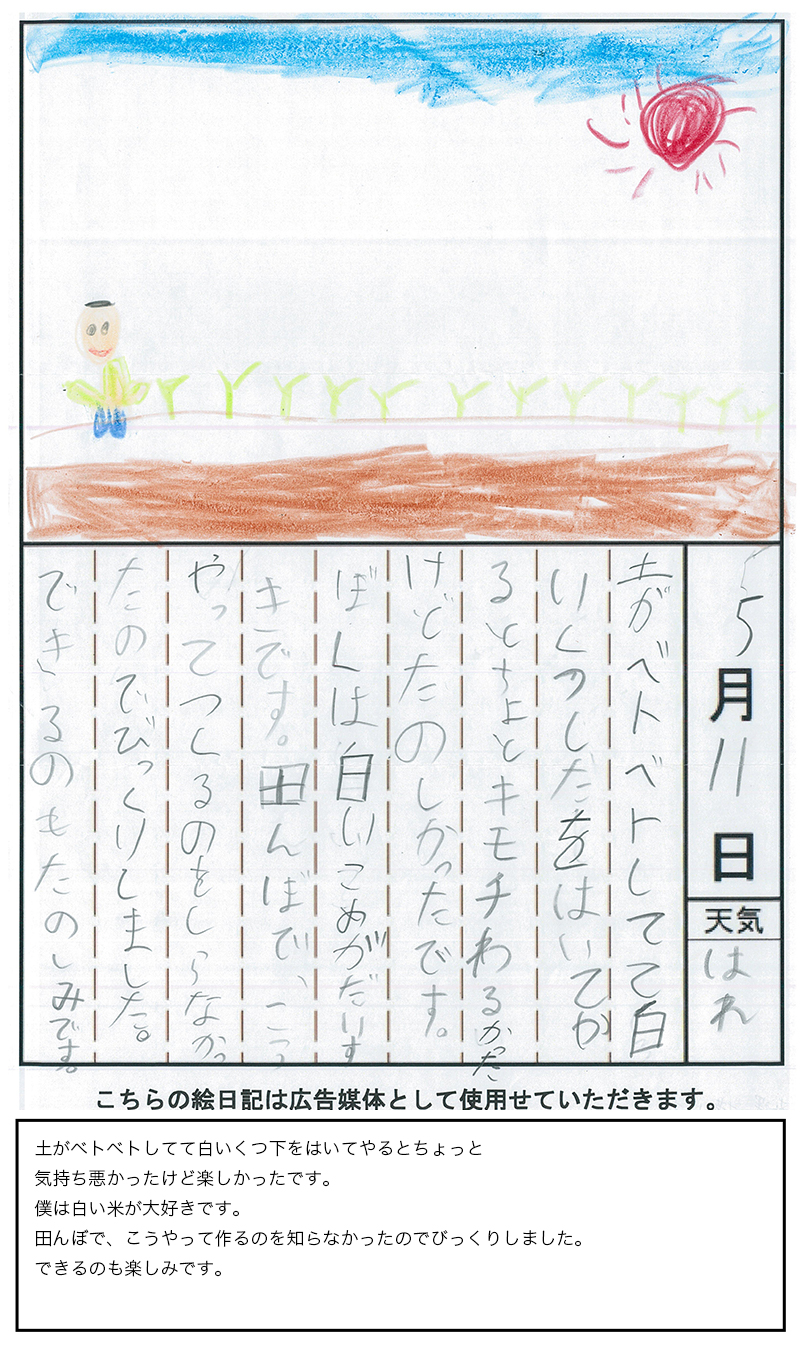 5月11日
天気
はれ
土がベトベトしてて白
いくつしたをはいてや
るとちよとキモチわるかった
けどたのしかったです。
ぼくは白いこめがだいす
きです。田んぼで、こう
やってつくるのをしらなかっ
たのでびっくりしました。
できるのもたのしみです。
こちらの絵日記は広告媒体として使用せていただきます。
土がベトベトしてて白いくつ下をはいてやるとちょっと
気持ち悪かったけど楽しかったです。
僕は白い米が大好きです。
田んぼで、こうやって作るのを知らなかったのでびっくりしました。
できるのも楽しみです。